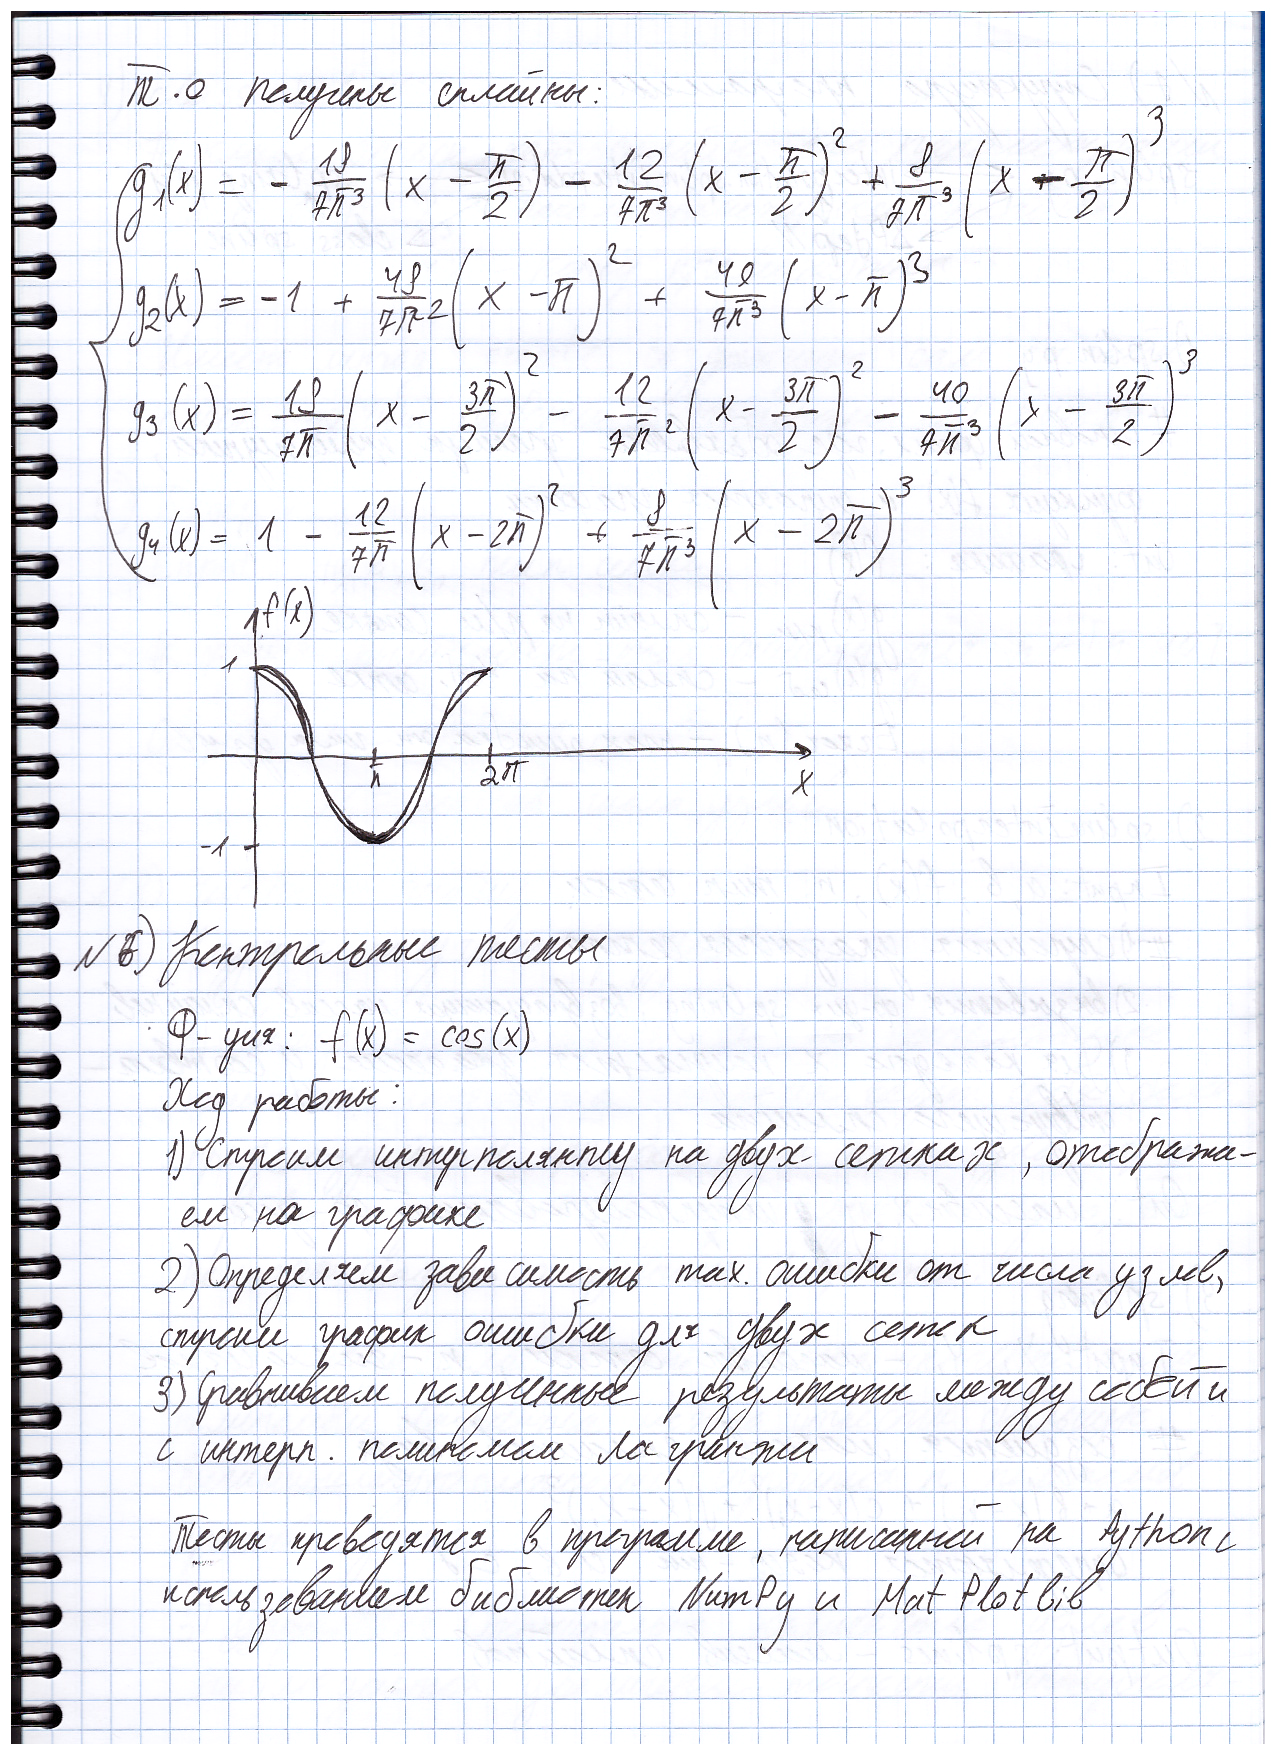 Т.о получены сплайны:
g₁(x) = - 18/7π³ (x - π/2) - 12/7π³ (x - π/2)² + 8/7π³ (x - π/2)³
g₂(x) = -1 + 48/7π² (x - π)² + 40/7π³ (x - π)³
g₃(x) = 18/7π (x - 3π/2)² - 12/7π² (x - 3π/2)² - 40/7π³ (x - 3π/2)³
g₄(x) = 1 - 12/7π (x - 2π)² + 8/7π³ (x - 2π)³
f(x)
1
π
2π
x
-1
№6) Контрольные тесты
Ф-ция: f(x) = cos(x)
Ход работы:
1) Строим интерполянту на двух сетках, отобража-
ем на графике
2) Определяем зависимость max. ошибки от числа узлов,
строим график ошибки для двух сеток
3) Сравниваем полученные результаты между собой и
с интерп. полиномом Лагранжа
Тесты проводятся в программе, написанной на Python с
использованием библиотек NumPy и MatPlotLib